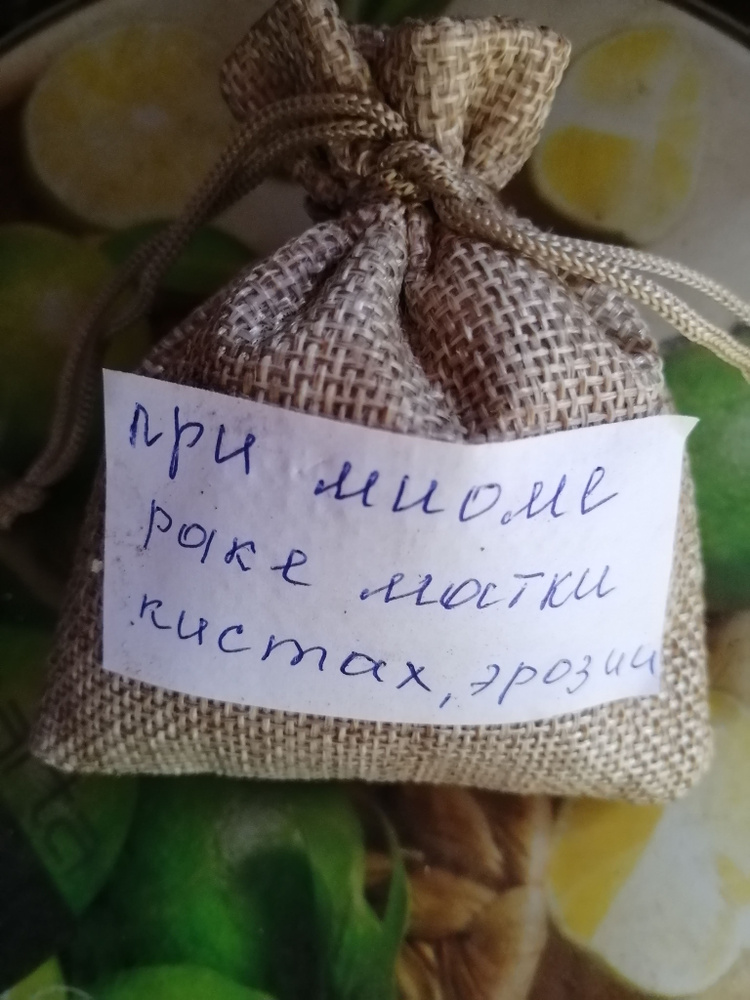 при миоме
раке матки
кистах, эрозии